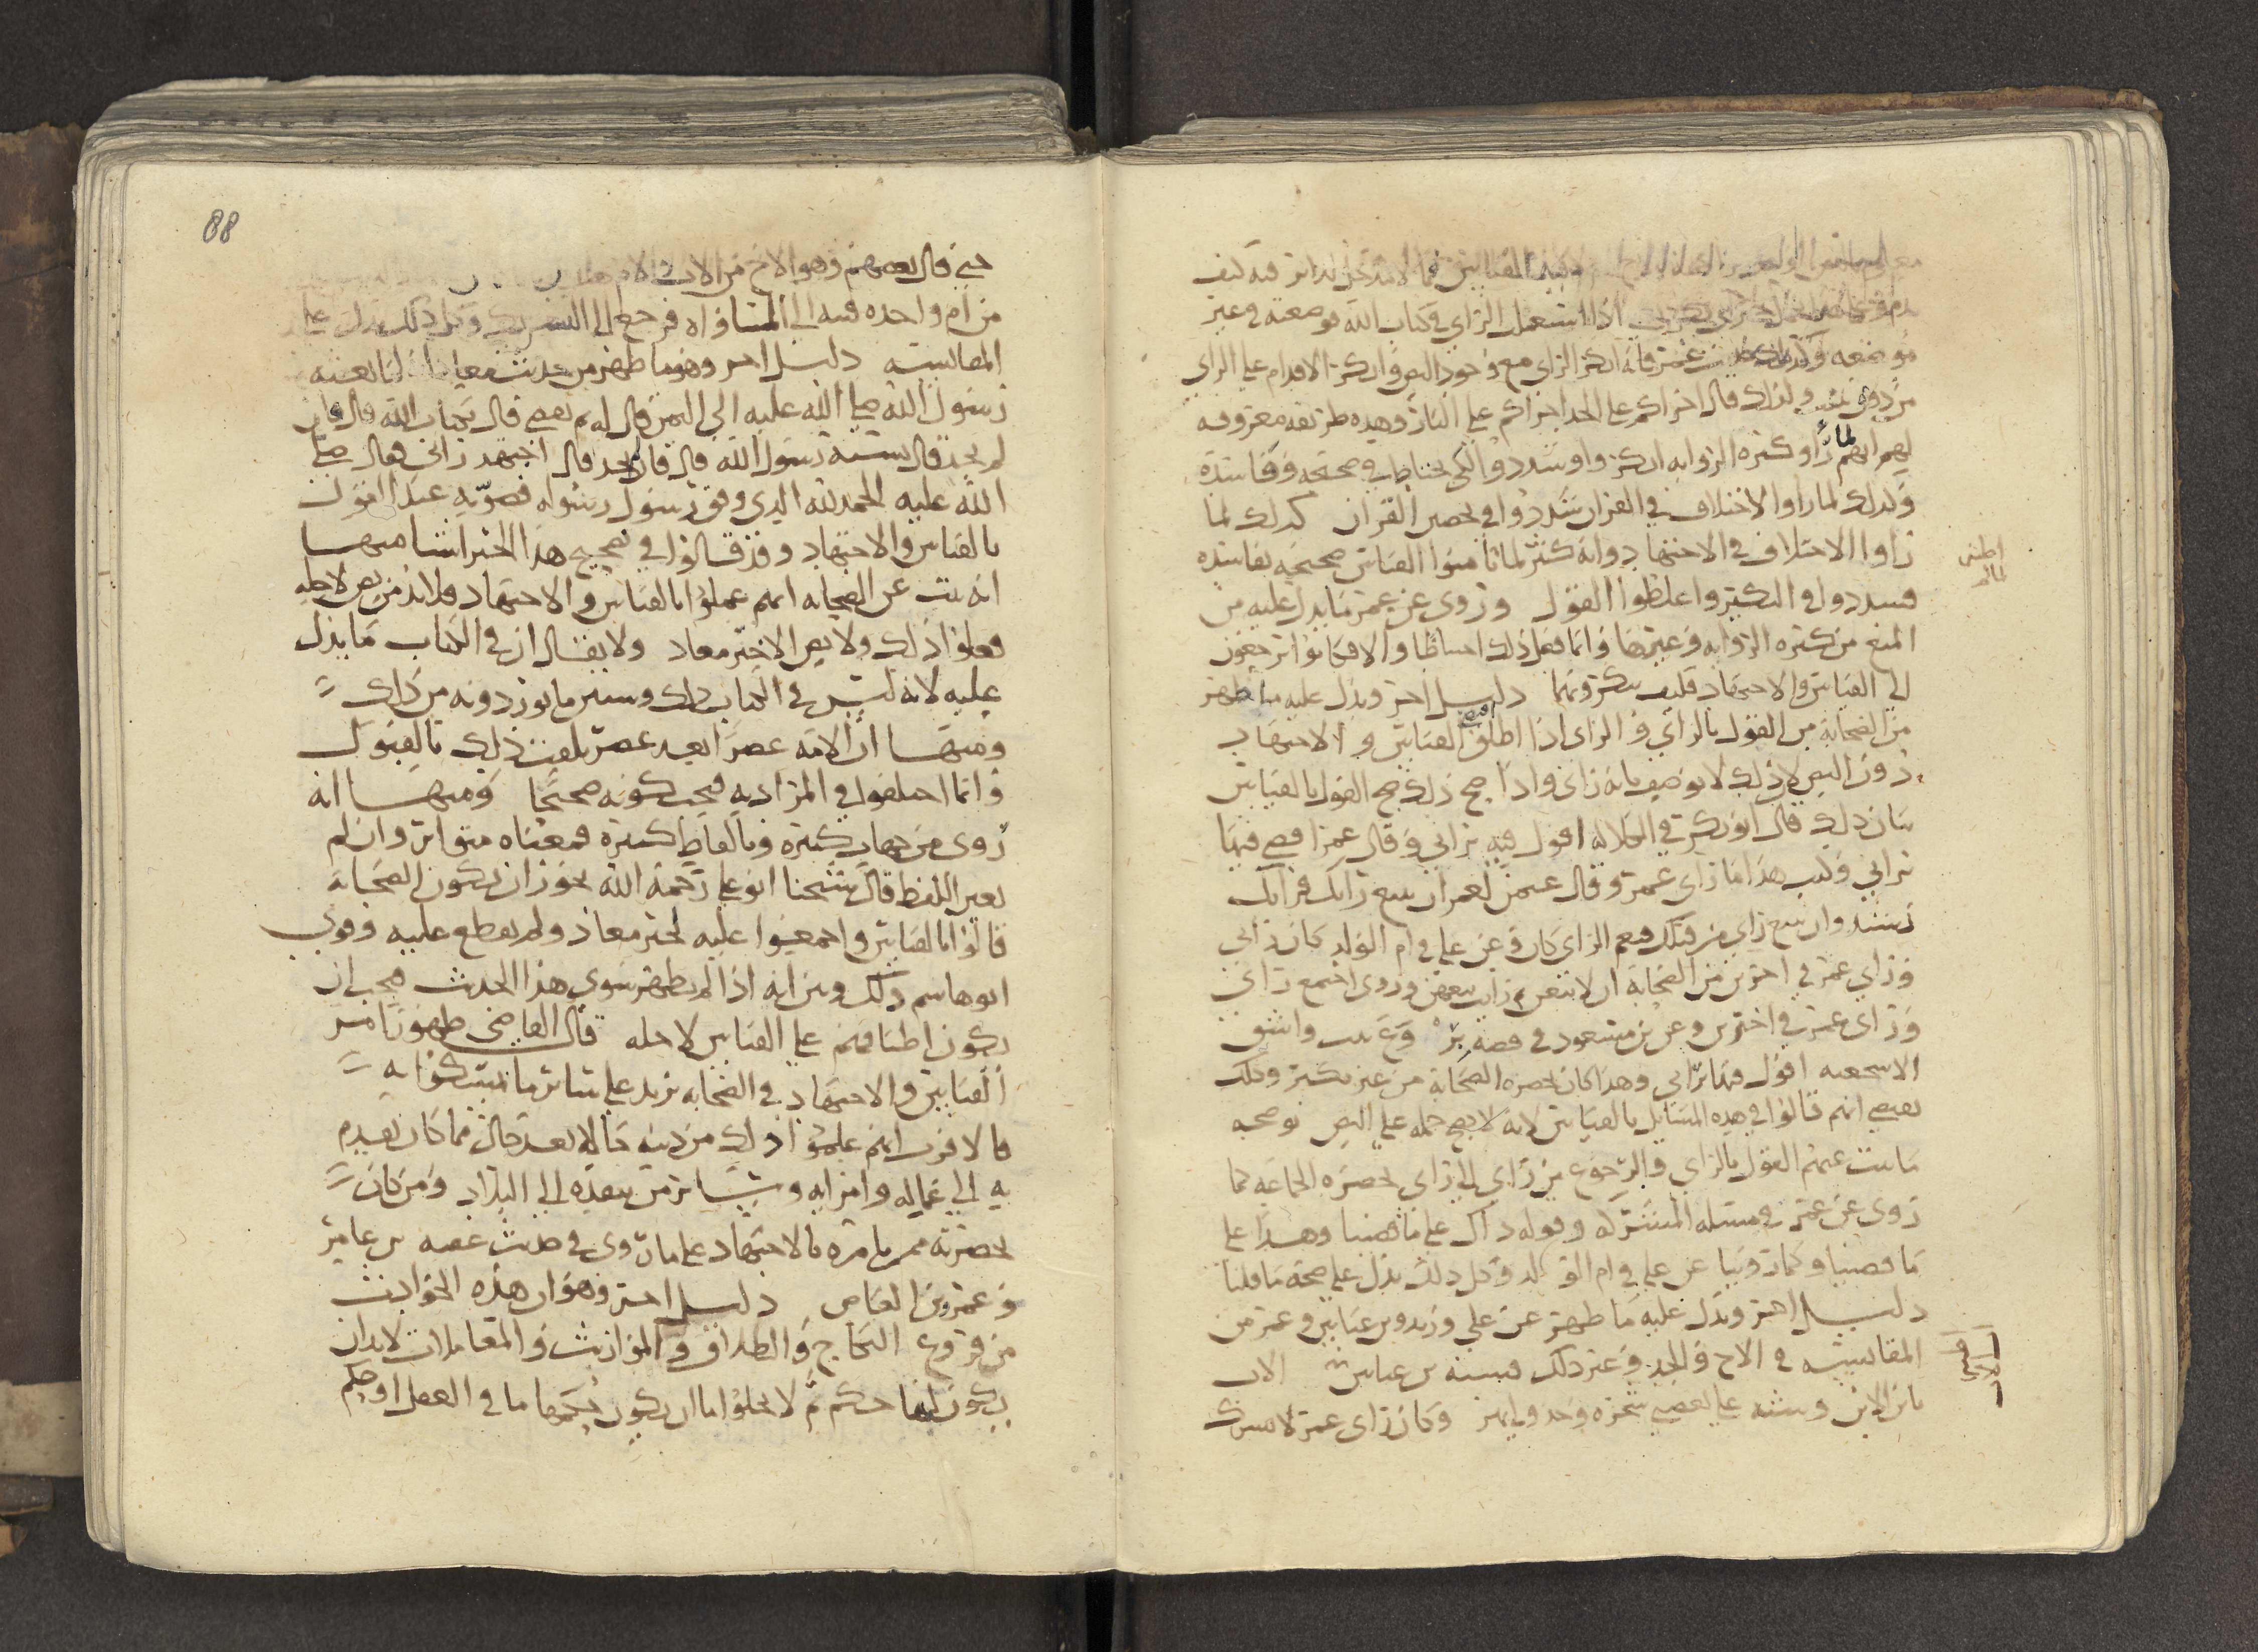 اذا استعمل الراي في كتاب الله بوضعه في غير
موضعه وكذلك عمر فانه انكر الراي مع وجود النص وانكر الاقدام على الراي
من دون ولذلك قال اجراكم على الجد اجراكم على النار وهذه طريقه معروفه
لهم انهم لما راو كثره الروايه انكروا وشددوا لكي يحتاط في صحته وفاسده
وكذلك لما راوا الاختلاف في القران شددوا في القران كذلك لما
راوا الاختلاف في الاجتهاد وانه كثر القياس صحيحه بفاسده
فشددوا في النكير واغلظوا القول وروى عن عمر ما يدل عليه من
المنع من كثره الروايه وغيرها وانما فعل ذلك احتياطا والا فكانوا يرجعون
الى القياس والاجتهاد فكيف ينكرونها دليل اخر ويدل عليه ما ظهر
من الصحابة من القول بالراي والراي اذا اطلق القياس والاجتهاد
دون النص لان ذلك لا يوصف بانه راي واذا صح ذلك صح القول بالقياس
بيان ذلك قال ابو بكر في الكلاله اقول فيه براي وقال عمر اقضي فيها
براي وكتب هذا ما راى عمر وقال عثمن لعمر ان نتبع رايك فرايك
رشد وان نتبع راي من قبلك فنعم الراي كان وعن علي في ام الولد كان رايي
وراي عمر في اخرين من الصحابة ان لا يبعن ثم رايت بيعهن وروى اجتمع رايي
وراى عمر في اخرين وعن بن مسعود في قصه بروع بنت واشق
الاشجعيه اقول فيها براي وهذا كان بحضره الصحابة من غير نكير وذلك
يقتضي انهم قالوا في هذه المسايل بالقياس لانه لا يصح حمله على النص يوضحه
ما ثبت عنهم القول بالراي والرجوع من راي الى راي بحضره الجماعه كما
روى عن عمر في مسله المشتركه وقوله ذاك على ما قضينا وهذا على
ما قضينا وكما روينا عن علي في ام الولد وكل ذلك يدل على صحة ما قلنا
دليل اخر ويدل عليه ما ظهر عن علي وزيد وبن عباس وعمر من
المقايسه في الاخ والجد وغير ذلك فشبه بن عباس الاب
بابن الابن وشبه علي بغصني شجره وجدولي نهر وكان راى عمر لا يشرك
88
حتى قال بعضهم وهو الاخ من الاب والام
من ام واحده فنبه الى المساواه فرجع الى التشريك وكل ذلك يدل على
المقايسه دليل اخر وهو ما ظهر من حديث معاذ لما بعثه
رسول الله صلى الله عليه الى اليمن قال له بم تقضي قال بكتاب الله قال فان
لم تجد قال بسنة رسول الله قال فان لم تجد قال اجتهد رايي فقال صلى
الله عليه الحمد لله الذي وفق رسول رسوله فصوبه عند القول
بالقياس والاجتهاد وقد قالوا في تصحيح هذا الخبر اشيا منها
انه ثبت عن الصحابه انهم عملوا بالقياس والاجتهاد فلا بد من نص لاجله
فعلوا ذلك ولا نص الا خبر معاذ ولا يقال ان في الكتاب ما يدل
عليه لانه ليس في الكتاب ذلك وسنبين ما يوردونه من ذلك
ومنها ان الامه عصرا بعد عصر تلقت ذلك بالقبول
وانما اختلفوا في المراد به فيجب كونه صحيحا ومنها انه
روى من جهات كثيرة وبالفاظ كثيرة فمعناه متواتر وان لم
يعين اللفظ قال شيخنا ابو علي رحمة الله يجوز ان يكون الصحابة
قالوا بالقياس واجمعوا عليه لخبر معاذ ولم يقطع عليه وقوى
ابو هاشم ذلك وبين انه اذا لم يظهر سوى هذا الحديث فيجب ان
يكون اطباقهم على القياس لاجله قال القاضي ظهور امر
القياس والاجتهاد في الصحابه يزيد على ساير ما تمسكوا به
فالاقرب انهم علموا ذلك من دينه حالا بعد حال مما كان يقدم
به الى عماله وامرايه وساير من ينفذه الى البلاد ومن كان
بحضرته ممن يامره بالاجتهاد على ما روى في حديث عقبه بن عامر
وعمرو بن العاص دليل اخر وهو ان هذه الحوادث
من فروع النكاح والطلاق والمواريث والمعاملات لا بد ان
يكون لها حكم ثم لا يخلوا اما ان يكون حكمها ما في العقل او حكم